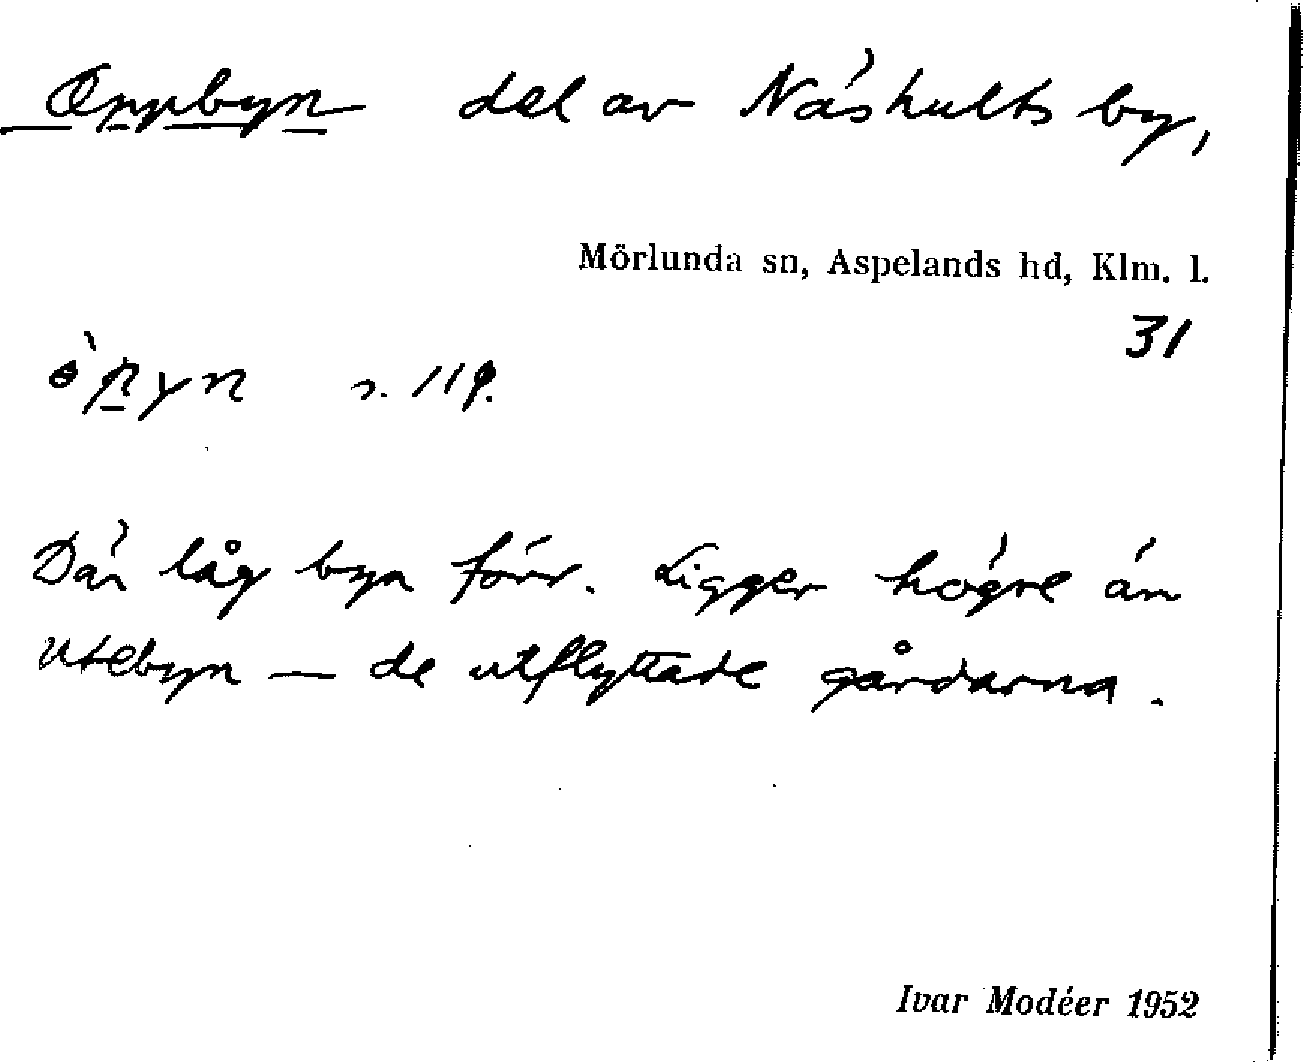 Oppbyn del av Näshults by,
Mörlunda sn, Aspelands hd, Klm. l.
31
s. 119.
Där låg byn förr. Ligger högre än
Utebyn — de utflyttade gårdarna.
Ivar Modéer 1952